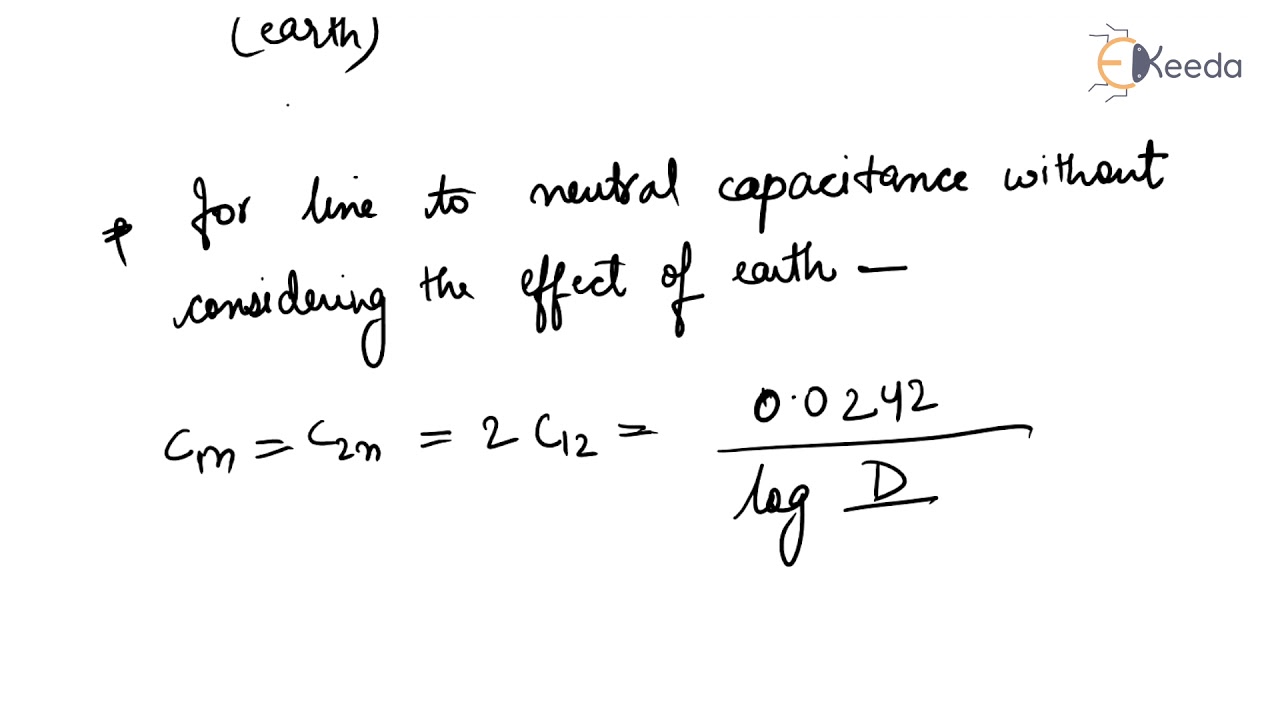 (earth)
EKeeda
* for line to neutral capacitance without
considering the effect of earth —
Cm = C2n = 2 C12 = 0.0242
log D